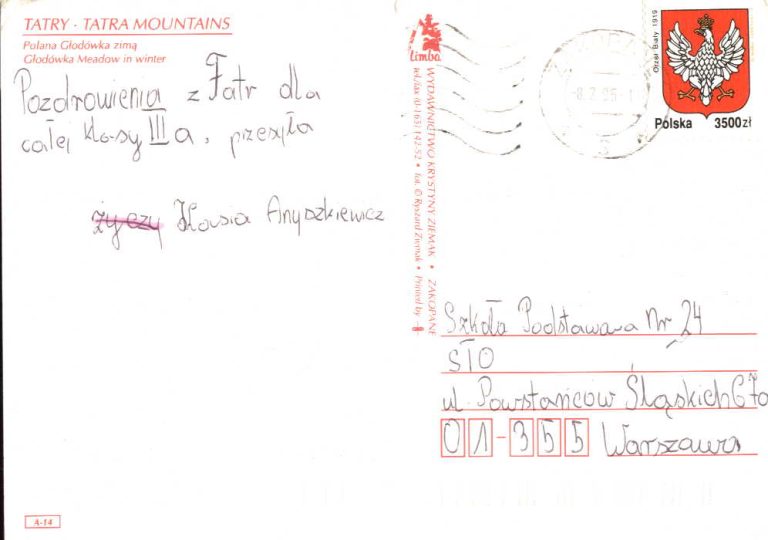 TATRY · TATRA MOUNTAINS
Polana Głodówka zimą
Głodówka Meadow in winter
Pozdrowienia z Tatr dla
całej klasy III a, przesyła
życzy Kasia Anyszkiewicz
Limba
WYDAWNICTWO KRYSTYNY ZIEMAK • ZAKOPANE
tel./fax (0-165) 142-52 • fot. © Ryszard Ziemak • Printed by
Orzeł Biały 1919
Polska 3500zł
Szkoła Podstawowa Nr 24
STO
ul. Powstańców Śląskich
01-355 Warszawa
A-14